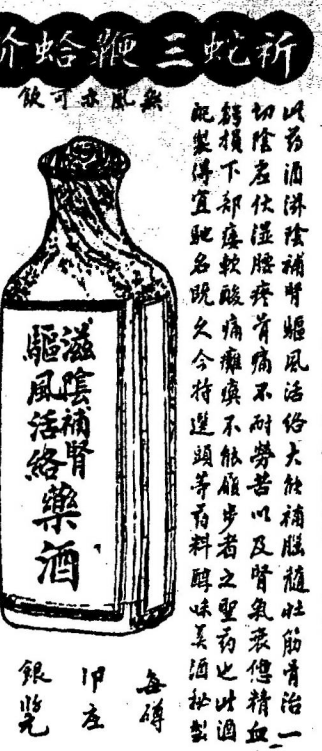 祈蛇三鞭蛤蚧
無風亦可飲
此药酒滋陰補腎驅風活络大能補腦髓壮筋骨治一
切陰虚伏湿腰疼骨痛不耐勞苦以及腎氣衰憊精血
虧損下部痿軟酸痛癱瘓不能履步者之聖药也此酒
配製得宜馳名既久今特選頭等药料醇味美酒秘製
滋陰補腎
驅風活絡
藥酒
每罇
印庄
銀